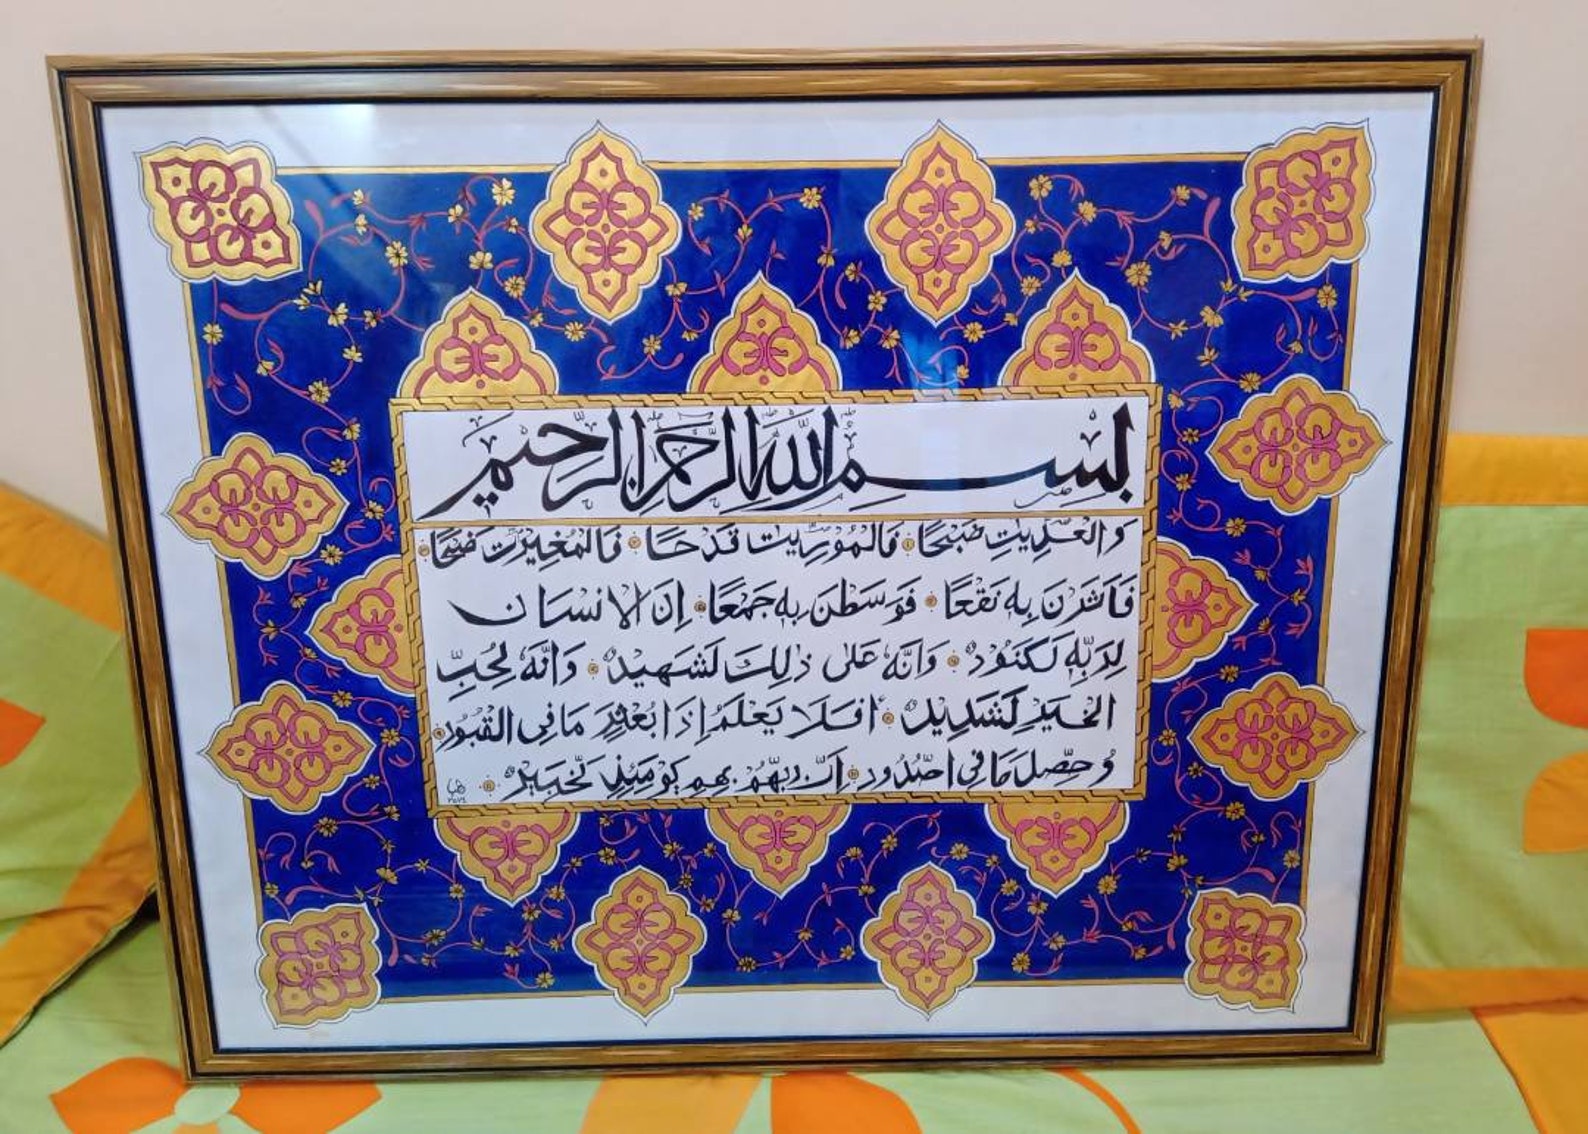 بسم الله الرحمن الرحيم
وَالْعٰدِيٰتِ ضَبْحًا فَالْمُوْرِيٰتِ قَدْحًا فَالْمُغِيْرٰتِ صُبْحًا
فَاَثَرْنَ بِهٖ نَقْعًا فَوَسَطْنَ بِهٖ جَمْعًا اِنَّ الْاِنْسَانَ
لِرَبِّهٖ لَكَنُوْدٌ وَاِنَّهٗ عَلٰى ذٰلِكَ لَشَهِيْدٌ وَاِنَّهٗ لِحُبِّ
الْخَيْرِ لَشَدِيْدٌ اَفَلَا يَعْلَمُ اِذَا بُعْثِرَ مَا فِي الْقُبُوْرِ
وَحُصِّلَ مَا فِي الصُّدُوْرِ اِنَّ رَبَّهُمْ بِهِمْ يَوْمَئِذٍ لَّخَبِيْرٌ